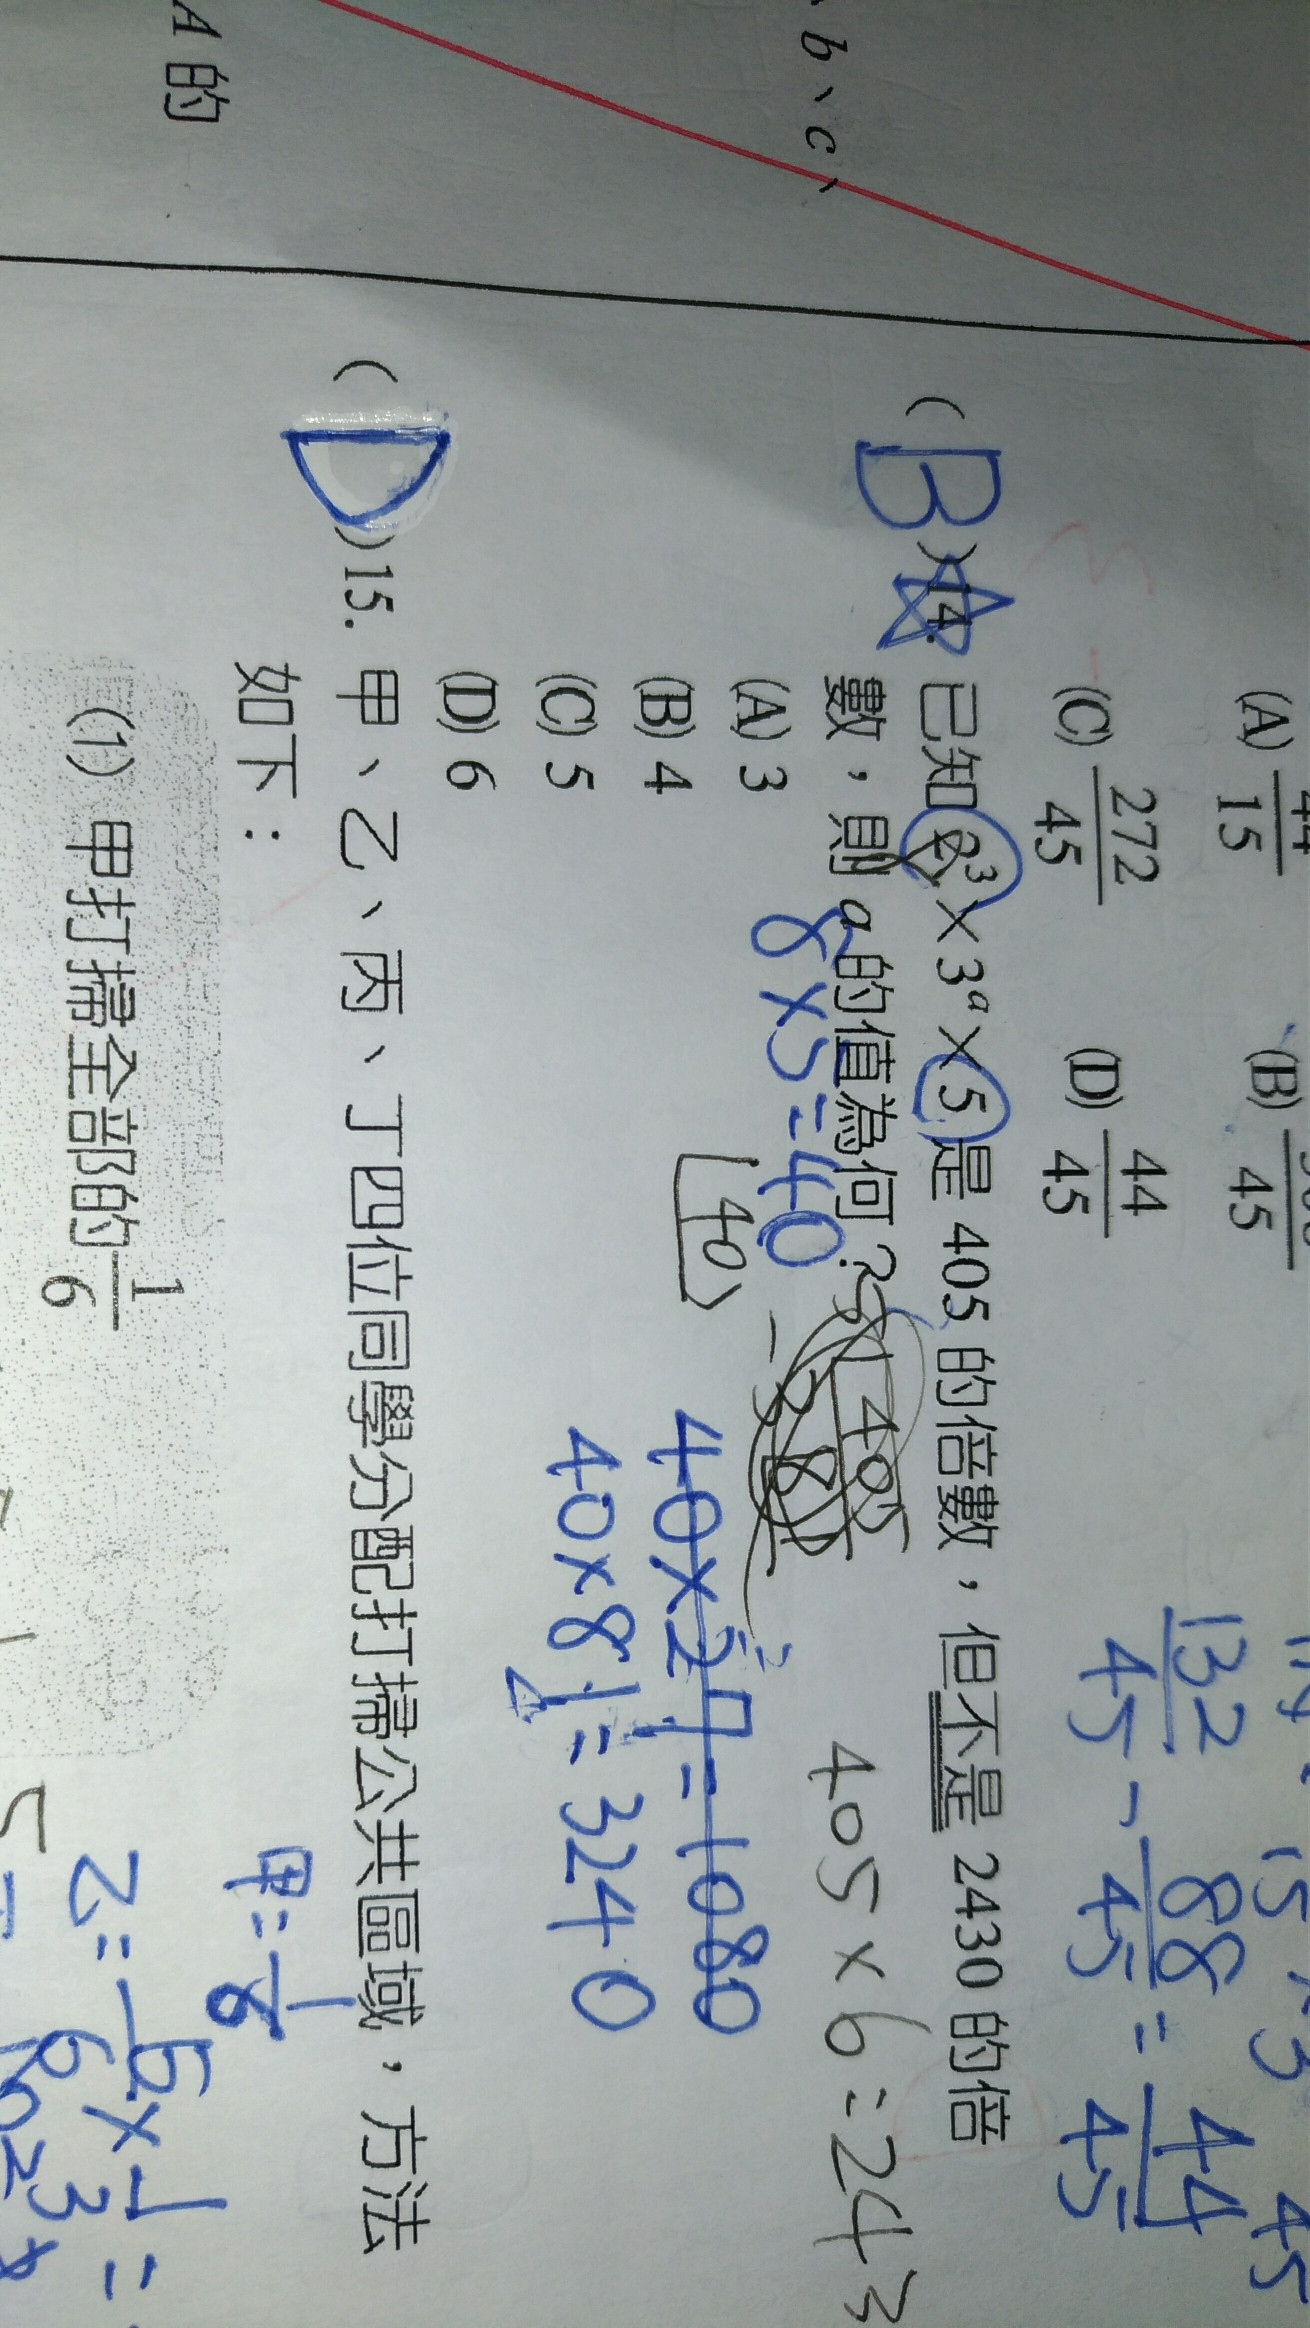 (A) 44/15 (B) /45
(C) 272/45 (D) 44/45
132/45 - 88/45 = 44/45
( B )14. 已知 2³×3ᵃ×5 是 405 的倍數,但不是 2430 的倍
數,則 a 的值為何?
405×6=243
8×5=40
40
(A) 3
(B) 4
40×27=1080
(C) 5
40×81=3240
(D) 6
( D )15. 甲、乙、丙、丁四位同學分配打掃公共區域,方法
如下:
甲=1/6
(1) 甲打掃全部的 1/6
乙=5/6×1/3=
b、c、
A 的